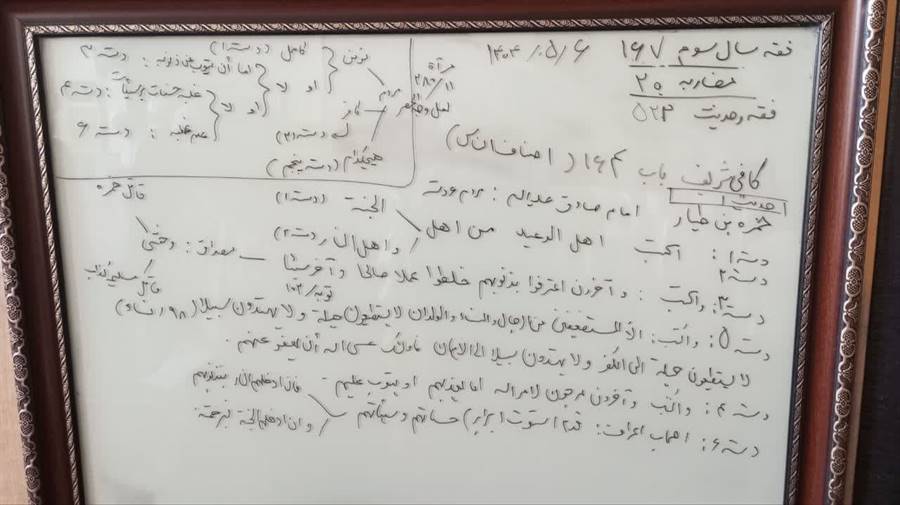 فقه سال سوم ۱۶۷ ۱۴۰۴/۵/۶
مضاربه ۲۰
فقه و حدیث ۵۲۳
کافی شریف باب ۱۶۴ (اصناف الناس)
حدیث ۱
حمزه بن طیار امام صادق علیه السلام : مردم ۶ دسته
دسته ۱ : اکتب اهل الوعید من اهل الجنة (دسته ۱)
دسته ۲ و اهل النار (دسته ۲)
دسته ۳ : واکتب : و آخرون اعترفوا بذنوبهم خلطوا عملا صالحا و آخر سیئا مصداق : وحشی قاتل حمزه
توبه/۱۰۲ قاتل مسیلمه کذاب
دسته ۵ : واکتب : الا المستضعفین من الرجال والنساء والولدان لا یستطیعون حیلة ولا یهتدون سبیلا (۹۸/نساء)
لا یستطیعون حیلة الی الکفر ولا یهتدون سبیلا الی الایمان فاولئک عسی الله أن یعفو عنهم .
دسته ۴ : واکتب و آخرون مرجون لامر الله اما یعذبهم او یتوب علیهم
دسته ۶ : اصحاب اعراف : قوم استوت (برابر) حسناتهم و سیئاتهم فان ادخلهم النار بذنوبهم
و ان ادخلهم الجنة فبرحمته
مرآة
۱۱/۲۸۰
مردم
مومن
کامل (دسته ۱)
او لا
اما أن یتوب عن ذنوبه : دسته ۳
او لا
غلبه حسنات بر سیئات : دسته ۴
عدم غلبه : دسته ۶
کافر
(دسته ۲)
هیچکدام (دسته پنجم)